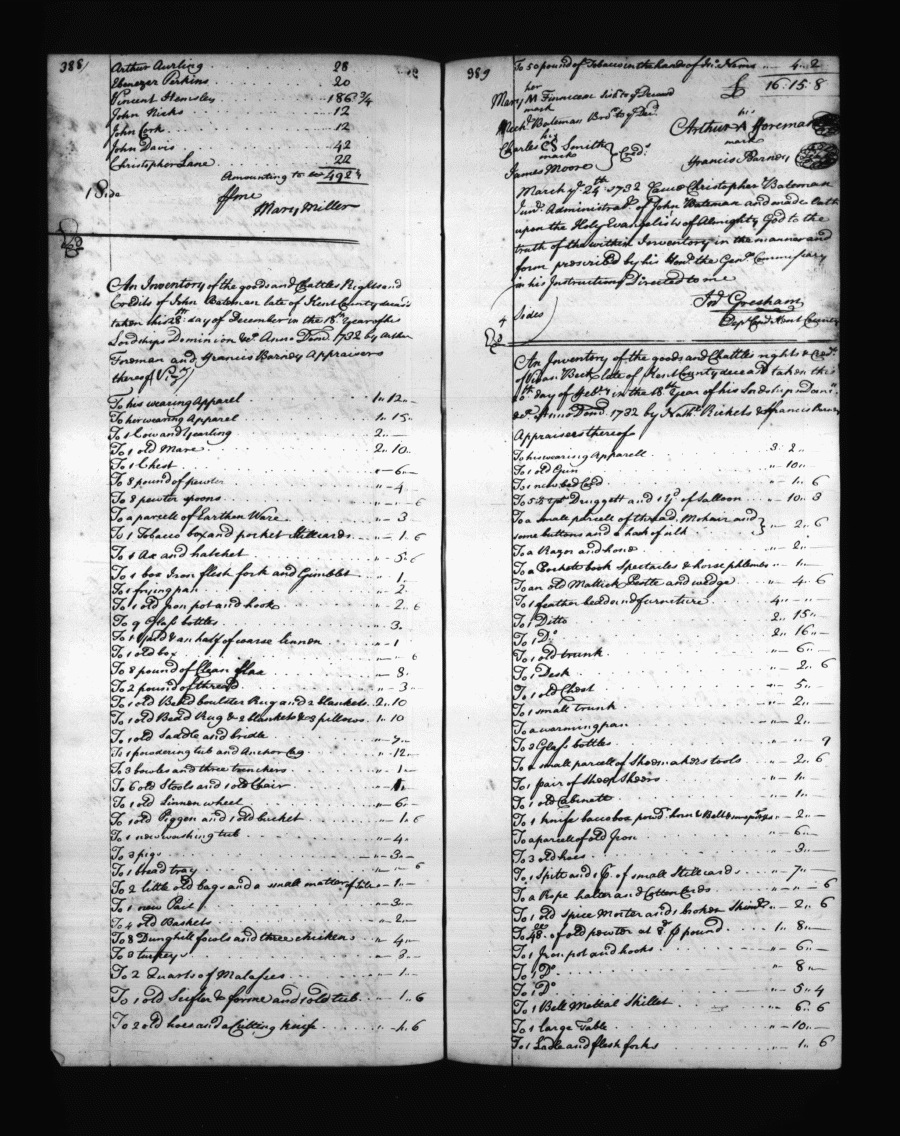 388
Arthur Aurling 28
Ebenezer Perkins 20
Vincent Hemsley 186 3/4
John Nicks 12
John Cork 12
John Davis 42
Christopher Lane 22
Amounting to
1 Side
Mary Miller
An Inventory of the goods and Chattles Rights and
Credits of John Bateman late of Kent County deced
taken this 28th day of December in the 18th Year of his
Lordships Dominion &c. Anno Dom. 1732 by Arthur
Foreman and Francis Barney Appraisers
thereof Vizt
To his wearing Apparel 1" 12"
To her wearing Apparel 1" 15"
To 1 Cow and Yearling 2" —
To 1 old Mare 2" 10
To 1 Chest " — 6 —
To 8 pound of pewter " — 4
To 8 pewter spoons " — " 6
To a parcell of Earthen Ware " — 3
To 1 Tobacco box and pocket Stilleards " — 1. 6
To 1 Ax and hatchet " — 5. 6
To 1 box Iron flesh fork and Gimblet " — 1
To 1 frying pan " — 2
To 1 old Iron pot and hook " — 2. 6
To 9 Glass bottles " — 3
To 1 Yard & an half of coarse linnen " — 1
To 1 old box " — 6
To 8 pound of Clean flax " — 8
To 2 pound of thread " — 3
To 1 old Bead boulster Rug and 2 blankets 2" 10
To 1 old Bead Rug & 2 blankets & 3 pillows 1" 10
To 1 old Saddle and bridle " — 7
To 1 powdering tub and Anchor Cag " — 12
To 3 bowles and three trenchers " — 1
To 6 old Stools and 1 old Chair " — 1
To 1 old Linnen wheel " — 6
To 1 old Piggon and 1 old bucket " — 1. 6
To 1 new washing tub " — 4
To 3 pigs " — 3
To 1 bread tray " — " 6
To 2 little old bags and a small matter of " — 1
To 1 new Pail " — 3
To 4 old Baskets " — 2
To 8 Dunghill fowls and three chickens " — 4
To 3 turkeys " — 3
To 2 Quarts of Malasses " — 1
To 1 old Seifter & forme and 1 old tub " — 1. 6
To 2 old hoes and a Cutting knife " — 4. 6
389
To 50 pound of Tobacco in the hands of 4" 2
£ 16. 15. 8
her
Mary M Finnican to ye Deced
mark
Michl. Bateman Bror. to ye Decd.
his
Charles CS Smith
mark
James Moore } Credrs
his
Arthur A Foreman
mark
Francis Barney
March ye 24th 1732 Came Christopher Bateman
Junr. Administrator of John Bateman and made Oath
upon the Holy Evangelists of Almighty God to the
truth of the within Inventory in the manner and
form prescribed by his Honr. the Genl. Commissary
in his Instructions Directed to me
4 Sides
Jno. Gresham
Depy. Comy. Kent County
An Inventory of the goods and Chattles rights & Credts.
of Vivan Beck late of Kent County deceasd taken this
day of Feby. in the 18th Year of his Lordships Domn.
&c. Anno Domi. 1732 by Nathl. Rickets & Francis Barney
Appraisers thereof
To his wearing Apparell 3" 2"
To 1 old Gun " 10"
To 1 new bed Cord " 1" 6
To 5 1/2 Yds. Druggett and 1 Yd. of Salloon " — 10" 3
To a small parcell of thread, Mohair and
some buttons and a hank of silk } " — 2" 6
To a Razor and hone " — 2"
To a Pocket book Spectacles & horse phlemes " — 1"
To an old Mattick Peoste and wedge " — 4" 6
To 1 feather bedd and furniture 4" — "
To 1 Ditto 2" 15"
To 1 Do. 2" 16"
To 1 old trunk " — 6"
To 1 Desk " — 2" 6
To 1 old Chest " — 5"
To 1 small trunk " — 2"
To a warming pan " — 2"
To 3 Glass bottles " — " 9
To a small parcell of Shoemakers tools " — 2" 6
To 1 pair of Sheep Sheers " — 1"
To 1 old Cabinett " — 1"
To 1 knife baccobox powdr. horn & Belt " — 2"
To a parcell of old Iron " — 6"
To 3 old hoes " — 3"
To 1 Spitt and 1 pr. of small Stilleards " — 7"
To a Rope halter and Cotton Cards " — " 6
To 1 old Spice Morter and 1 broken Skimr. " — 2" 6
To 42 of old pewter at 8d. p pound 1" 8"
To 1 Iron pot and hooks " — 6"
To 1 Do. " 8"
To 1 Do. " 5" 4
To 1 Bell Mettal Skillet " 6" 6
To 1 large Table " — 10"
To 1 Ladle and flesh forks " — 1" 6